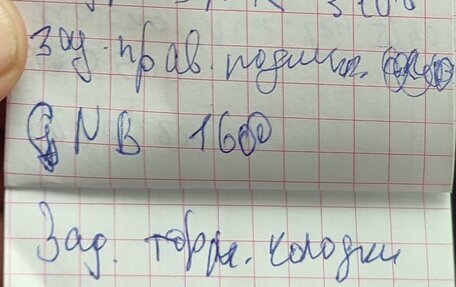 Зад. прав. подшип.
GNB 1600
Зад. торм. колодки